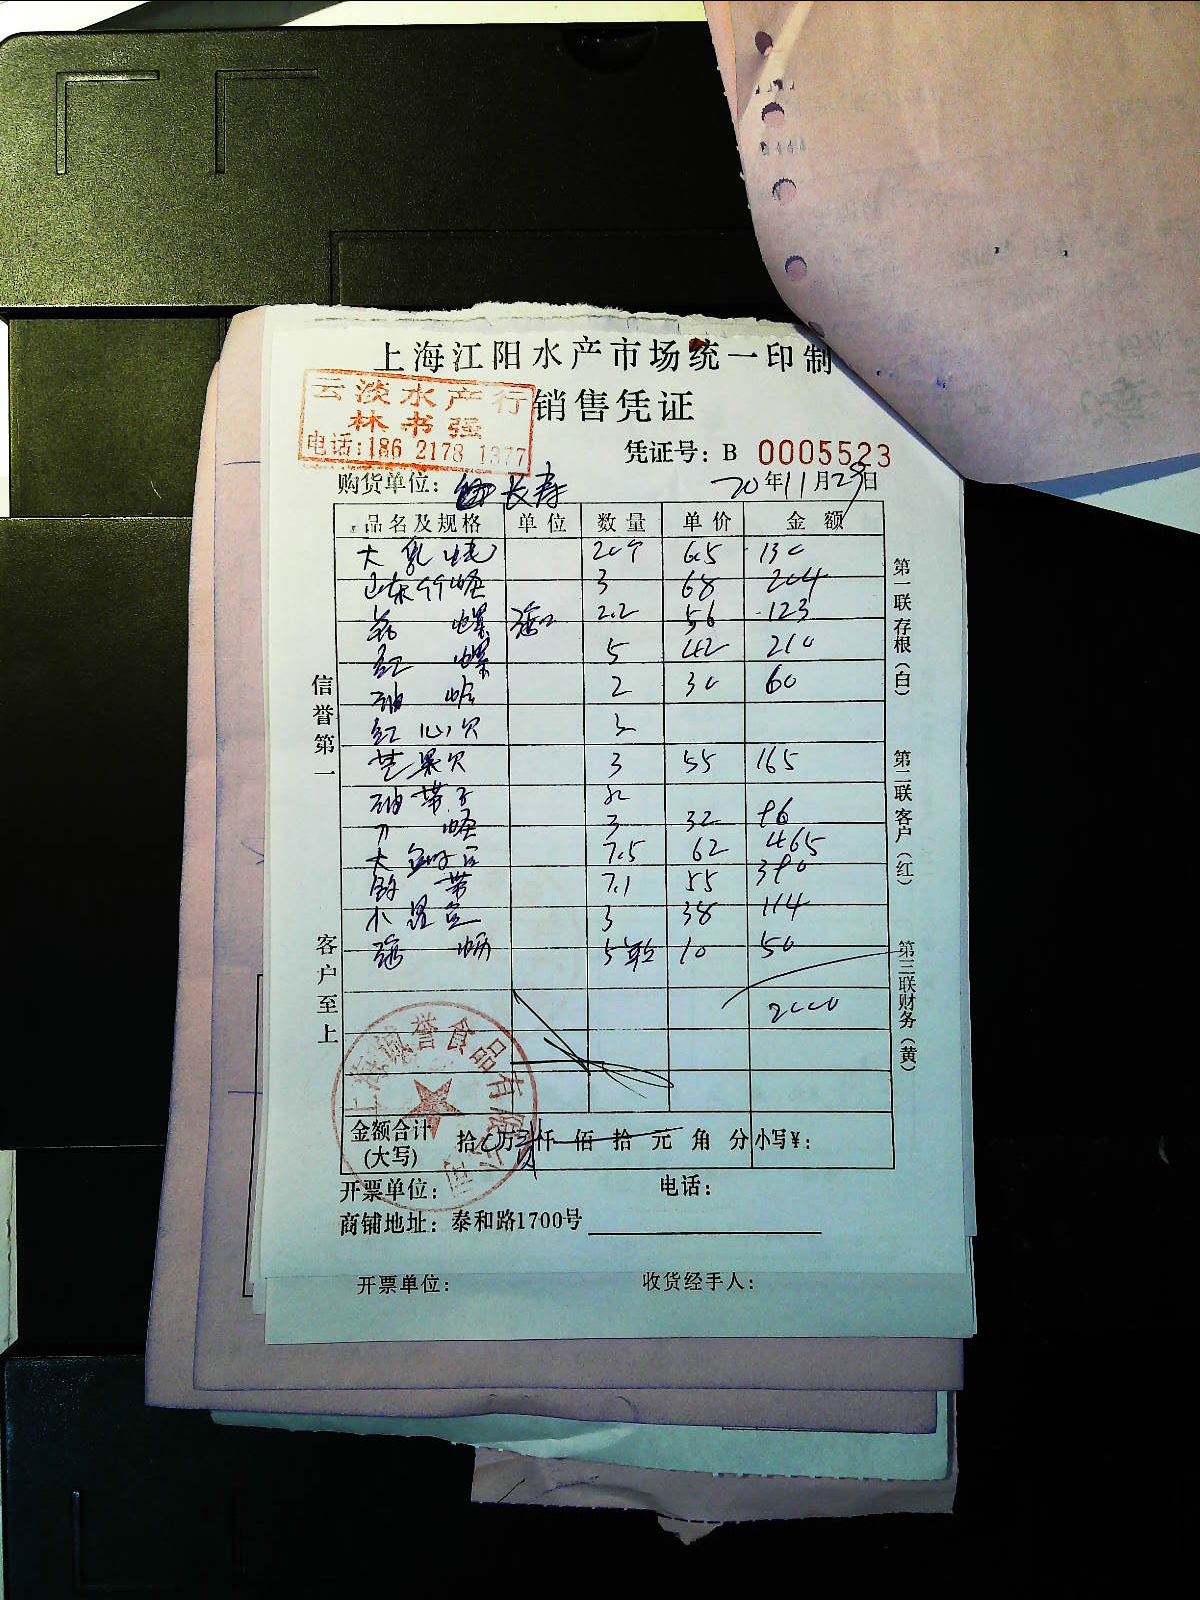 上海江阳水产市场统一印制
云淡水产行
林书强
电话:186 2178 1377
销售凭证
凭证号: B 0005523
购货单位: 长寿 20年11月29日
品名及规格 单位 数量 单价 金额
大 20个 65 130
山东 3 68 204
螺 2.2 56 123
红螺 5 42 210
油蛤 2 30 60
红心贝 3
芒果贝 3 55 165
油带子
刀 3 32 96
大 7.5 62 465
带 7.1 55 390
小 3 38 114
海 5 10 50
2000
金额合计
(大写)
拾 万 仟 佰 拾 元 角 分 小写¥:
开票单位: 电话:
商铺地址: 泰和路1700号
信誉第一
客户至上
第一联 存根(白)
第二联 客户(红)
第三联 财务(黄)
上海诚誉食品有限公司
开票单位: 收货经手人: